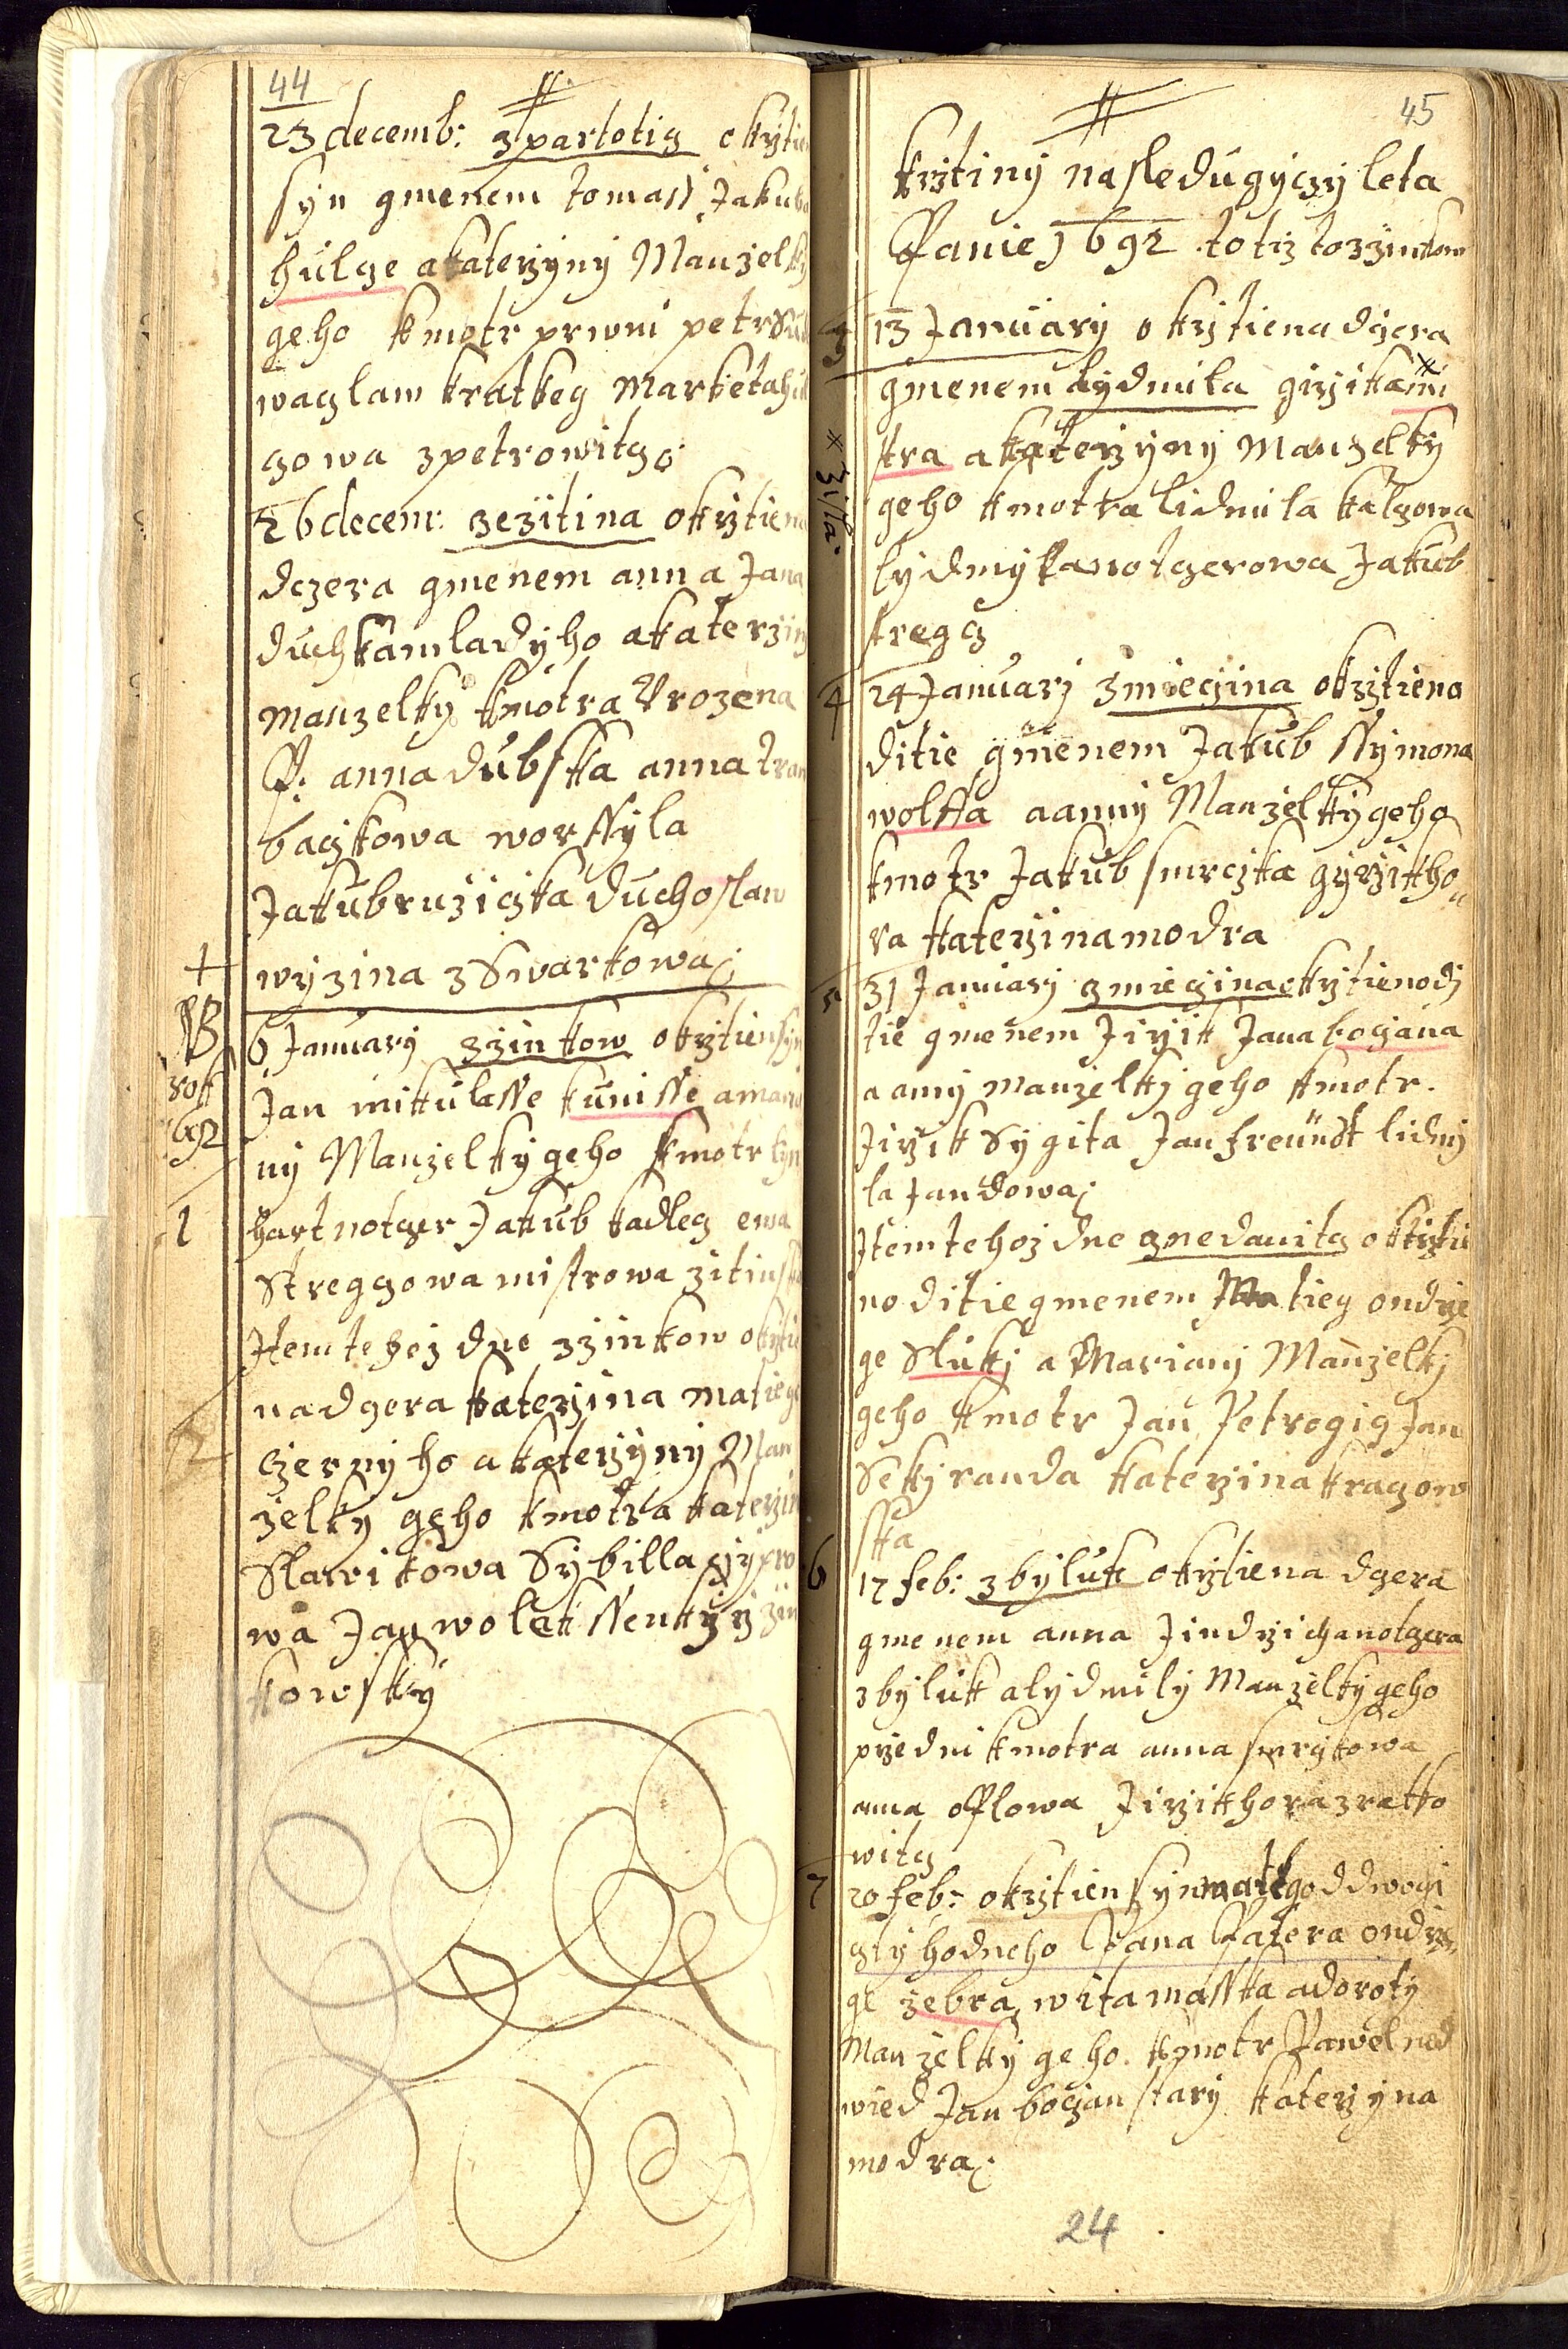 44
23 decemb: zpartotig okrztien
syn gmenem tomass Jakuba
hulge akaterzyny Manzelky
geho kmotr prwni petr
waczlaw kratkey Marketa
gowa zpetrowitz
26 decem: zezitina okrztiena
dczera gmenem anna Jana
duchka mladyho akaterziny
manzelky kmotra Urozena
P: anna dubska anna
baczkowa worssyla
Jakub ruziczka duchoslaw
wyzina z Swarkowa
NB
rok
692
6 January zzinkow okrztien syn
Jan mikulasse kunisse a
ny Manzelky geho kmotr
hart notzer Jakub kadleg ewa
Streggowa mistrowa
1
Item tehoz dne zzinkow okrztie
na dgera katerzina matiege
czernyho a katerzyny Man
zelky geho kmotra katerzina
Slawikowa Sybilla
wa Jan wolak ssenkyrz zin
kowsky
2
45
krztiny nasledugyczy leta
Panie 1692 totiz tozzinkow
3
13 January okrztiena dgera
gmenem lydmila girzika mi
stra a katerzyny Manzelky
geho kmotra lidmila kalgowa
lydmyla notgerowa Jakub
stregg
zilla
4
24 January zmieczina okrztieno
ditie gmenem Jakub ssymona
wolffa a anny Manzelky geho
kmotr Jakub smrczka gyrzik ho
ra katerzina modra
5
31 January zmieczina okrztieno di
tie gmenem Jirzik Jana boczana
a anny manzelky geho kmotr.
Jirzik Sygita Jan freundt lidmi
la Jandowa
Item tehoz dne znedanitz okrztie
no ditie gmenem Matieg ondrze
ge Sluky a Mariany Manzelky
geho kmotr Jan Petrogig Jan
Sekyranda katerzina kragow
ska
6
12 feb: zbyluk okrztiena dgera
gmenem anna Jindrzicha notgera
zbyluk a lydmily Manzelky geho
przedni kmotra anna smrczkowa
anna offlowa Jirzik hora zratko
witz
7
20 feb: okrztien syn mateg oddwogi
gtyhodneho Pana Patera ondrze
ge zebra wita masska a doroty
Manzelky geho kmotr Pawel ned
wied Jan boczan stary katerzyna
modra
24